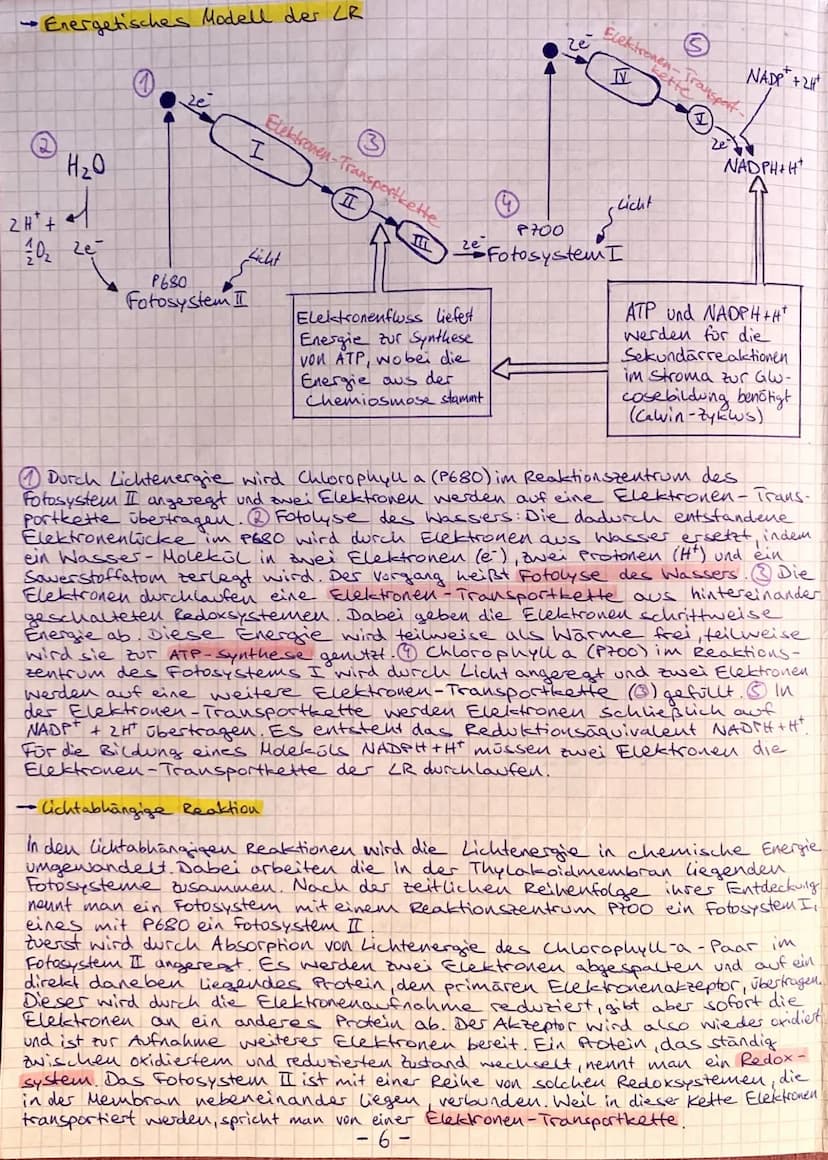 → Energetisches Modell der LR
① 2e⁻
② H₂O
2H⁺ +
½O₂ 2e⁻
P680
Fotosystem II
Licht
I
Elektronen-Transportkette
③
II
III
2e⁻
④
P700
Fotosystem I
Licht
2e⁻
Elektronen-Transport-
kette
⑤
IV
V
2e⁻
NADP⁺ + 2H⁺
NADPH+H⁺
Elektronenfluss liefest
Energie zur Synthese
von ATP, wobei die
Energie aus der
Chemiosmose stammt
ATP und NADPH+H⁺
werden für die
Sekundärreaktionen
im Stroma zur Glu-
cosebildung benötigt
(Calvin-Zyklus)
① Durch Lichtenergie wird Chlorophyll a (P680) im Reaktionszentrum des
Fotosystem II angeregt und zwei Elektronen werden auf eine Elektronen-Trans-
portkette übertragen. ② Fotolyse des Wassers: Die dadurch entstandene
Elektronenlücke im P680 wird durch Elektronen aus Wasser ersetzt, indem
ein Wasser-Molekül in zwei Elektronen (e⁻), zwei Protonen (H⁺) und ein
Sauerstoffatom zerlegt wird. Der Vorgang heißt Fotolyse des Wassers. ③ Die
Elektronen durchlaufen eine Elektronen-Transportkette aus hintereinander
geschalteten Redoxsystemen. Dabei geben die Elektronen schrittweise
Energie ab. Diese Energie wird teilweise als Wärme frei, teilweise
wird sie zur ATP-Synthese genutzt. ④ Chlorophyll a (P700) im Reaktions-
zentrum des Fotosystems I wird durch Licht angeregt und zwei Elektronen
werden auf eine weitere Elektronen-Transportkette (③) gefüllt. ⑤ In
der Elektronen-Transportkette werden Elektronen schließlich auf
NADP⁺ + 2H⁺ übertragen. Es entsteht das Reduktionsäquivalent NADPH+H⁺.
Für die Bildung eines Moleküls NADPH+H⁺ müssen zwei Elektronen die
Elektronen-Transportkette der LR durchlaufen.
→ Lichtabhängige Reaktion
In den Lichtabhängigen Reaktionen wird die Lichtenergie in chemische Energie
umgewandelt. Dabei arbeiten die in der Thylakoidmembran liegenden
Fotosysteme zusammen. Nach der zeitlichen Reihenfolge ihrer Entdeckung
nennt man ein Fotosystem mit einem Reaktionszentrum P700 ein Fotosystem I,
eines mit P680 ein Fotosystem II.
Zuerst wird durch Absorption von Lichtenergie des Chlorophyll-a-Paar im
Fotosystem II angeregt. Es werden zwei Elektronen abgespalten und auf ein
direkt daneben liegendes Protein, den primären Elektronenakzeptor, übertragen.
Dieser wird durch die Elektronenaufnahme reduziert, gibt aber sofort die
Elektronen an ein anderes Protein ab. Der Akzeptor wird also wieder oxidiert
und ist zur Aufnahme weiterer Elektronen bereit. Ein Protein, das ständig
zwischen oxidiertem und reduzierten Zustand wechselt, nennt man ein Redox-
system. Das Fotosystem II ist mit einer Reihe von solchen Redoxsystemen, die
in der Membran nebeneinander liegen, verbunden. Weil in dieser Kette Elektronen
transportiert werden, spricht man von einer Elektronen-Transportkette.
- 6 -